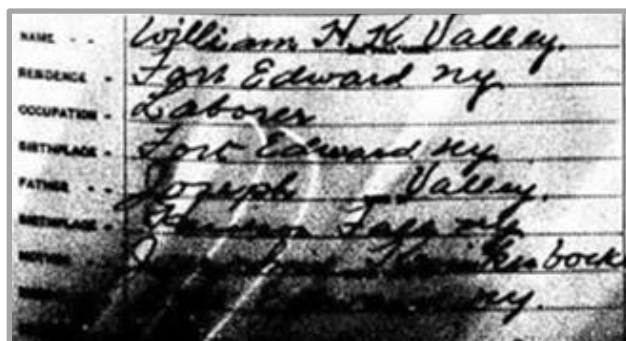 NAME - - William H. K. Valley.
RESIDENCE - Fort Edward ny
OCCUPATION - Laborer
BIRTHPLACE - Fort Edward ny
FATHER - - Joseph Valley.
BIRTHPLACE - Falls ny
MOTHER -
ny.